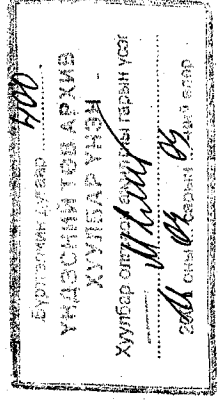 Бүртгэлийн дугаар 400
ҮНДЭСНИЙ ТӨВ АРХИВ
ХУУЛБАР ҮНЭН
Хуулбар олгосон ажилтны гарын үсэг
оны 03 сарын 03